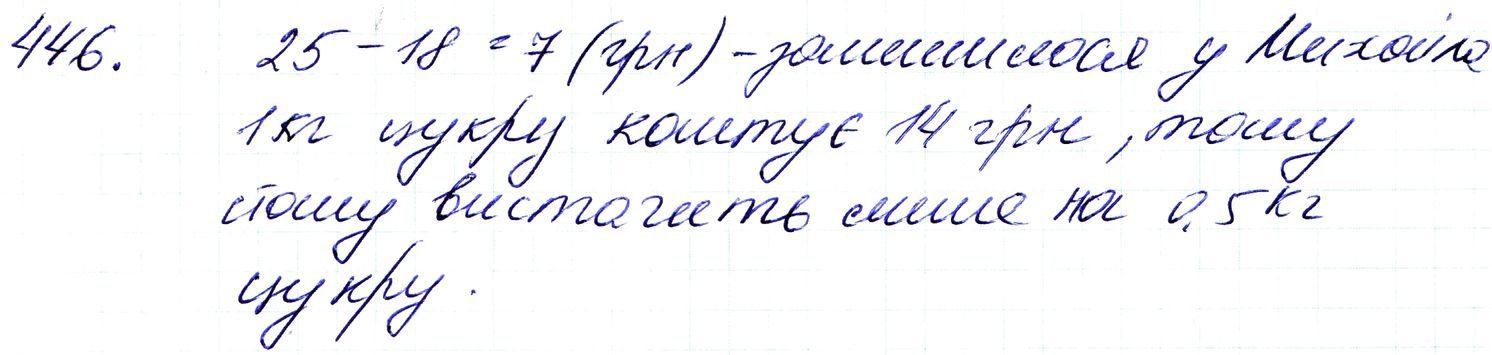 446. 25 - 18 = 7 (грн) - залишилося у Михайла
1 кг цукру коштує 14 грн, тому
йому вистачить лише на 0,5 кг
цукру.